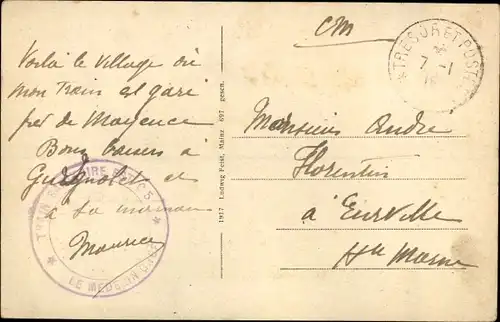 CM
TRESOR ET POSTES
7-1
Voilà le village où
mon Train est garé
près de Mayence
Bons baisers à
et
à sa maman
Maurice
TRAIN SANITAIRE
LE MEDECIN CHEF
1917 Ludwig Feist, Mainz 697 gesch.
Monsieur André
Florentin
à Eurville
Hte Marne